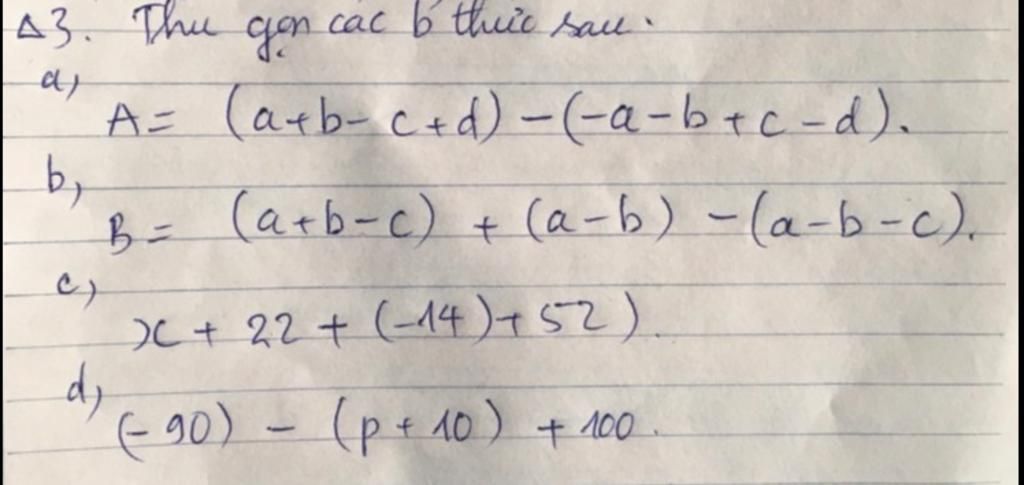 Δ3. Thu gọn các b' thức sau.
a,
A = (a+b-c+d) - (-a-b+c-d).
b,
B = (a+b-c) + (a-b) - (a-b-c).
c,
x + 22 + (-14) + 52).
d,
(-90) - (p+10) + 100.